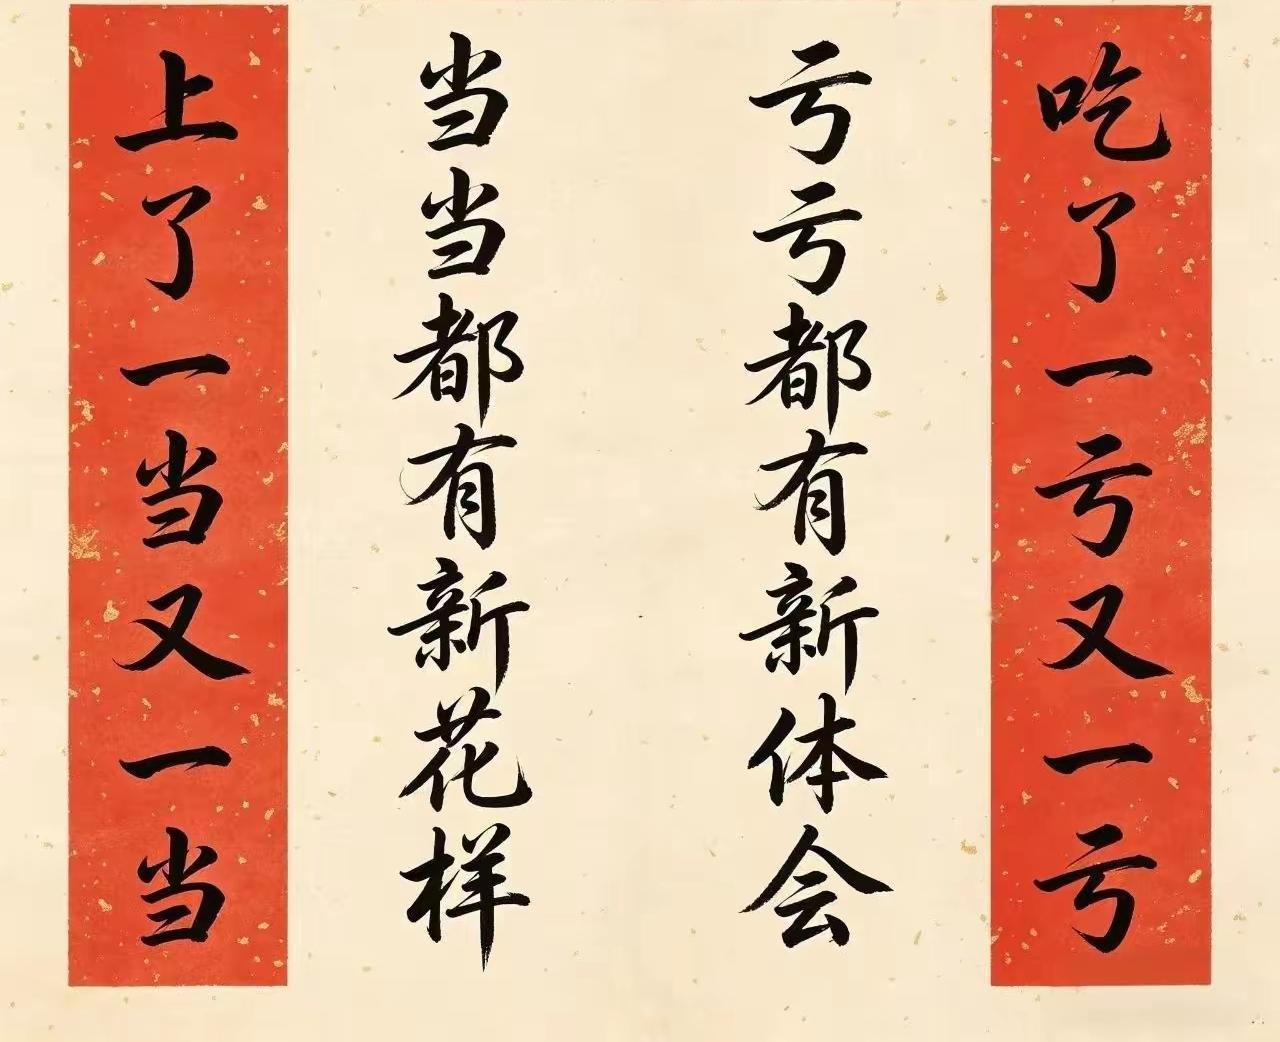 吃了一亏又一亏
亏亏都有新体会
当当都有新花样
上了一当又一当